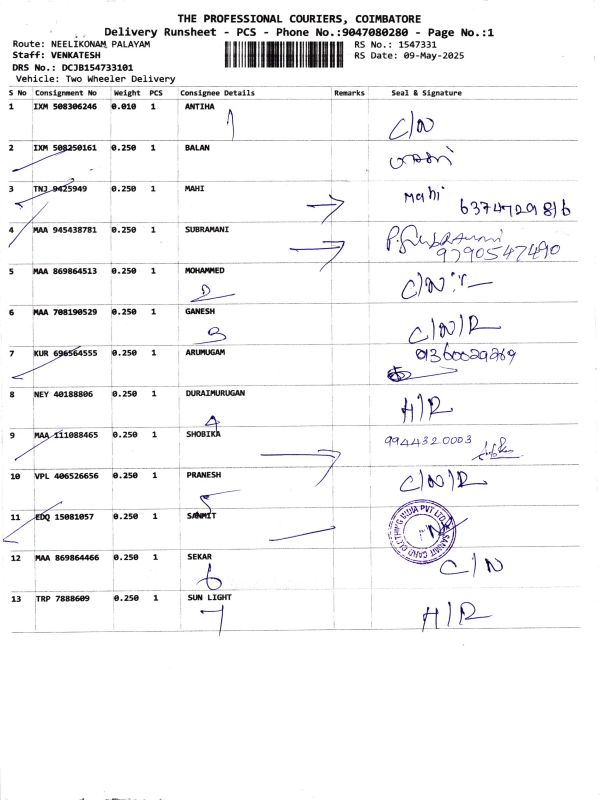 THE PROFESSIONAL COURIERS, COIMBATORE
Delivery Runsheet - PCS - Phone No.:9047080280 - Page No.:1
Route: NEELIKONAM PALAYAM RS No.: 1547331
Staff: VENKATESH RS Date: 09-May-2025
DRS No.: DCJB154733101
Vehicle: Two Wheeler Delivery
S No Consignment No Weight PCS Consignee Details Remarks Seal & Signature
1 IXM 508306246 0.010 1 ANTIHA
1 C/N
2 IXM 508250161 0.250 1 BALAN
3 TNJ 9425949 0.250 1 MAHI Mahi
6374729816
4 MAA 945438781 0.250 1 SUBRAMANI
9790547490
5 MAA 869864513 0.250 1 MOHAMMED
2 C/N
6 MAA 708190529 0.250 1 GANESH
3 C/N/R
7 KUR 696564555 0.250 1 ARUMUGAM
8 NEY 40188806 0.250 1 DURAIMURUGAN
4 H/R
9 MAA 111088465 0.250 1 SHOBIKA 9944320003
10 VPL 406526656 0.250 1 PRANESH
5 C/N/R
11 EDQ 15081057 0.250 1 SANMIT
12 MAA 869864466 0.250 1 SEKAR
6 C/N
13 TRP 7888609 0.250 1 SUN LIGHT
7 H/R